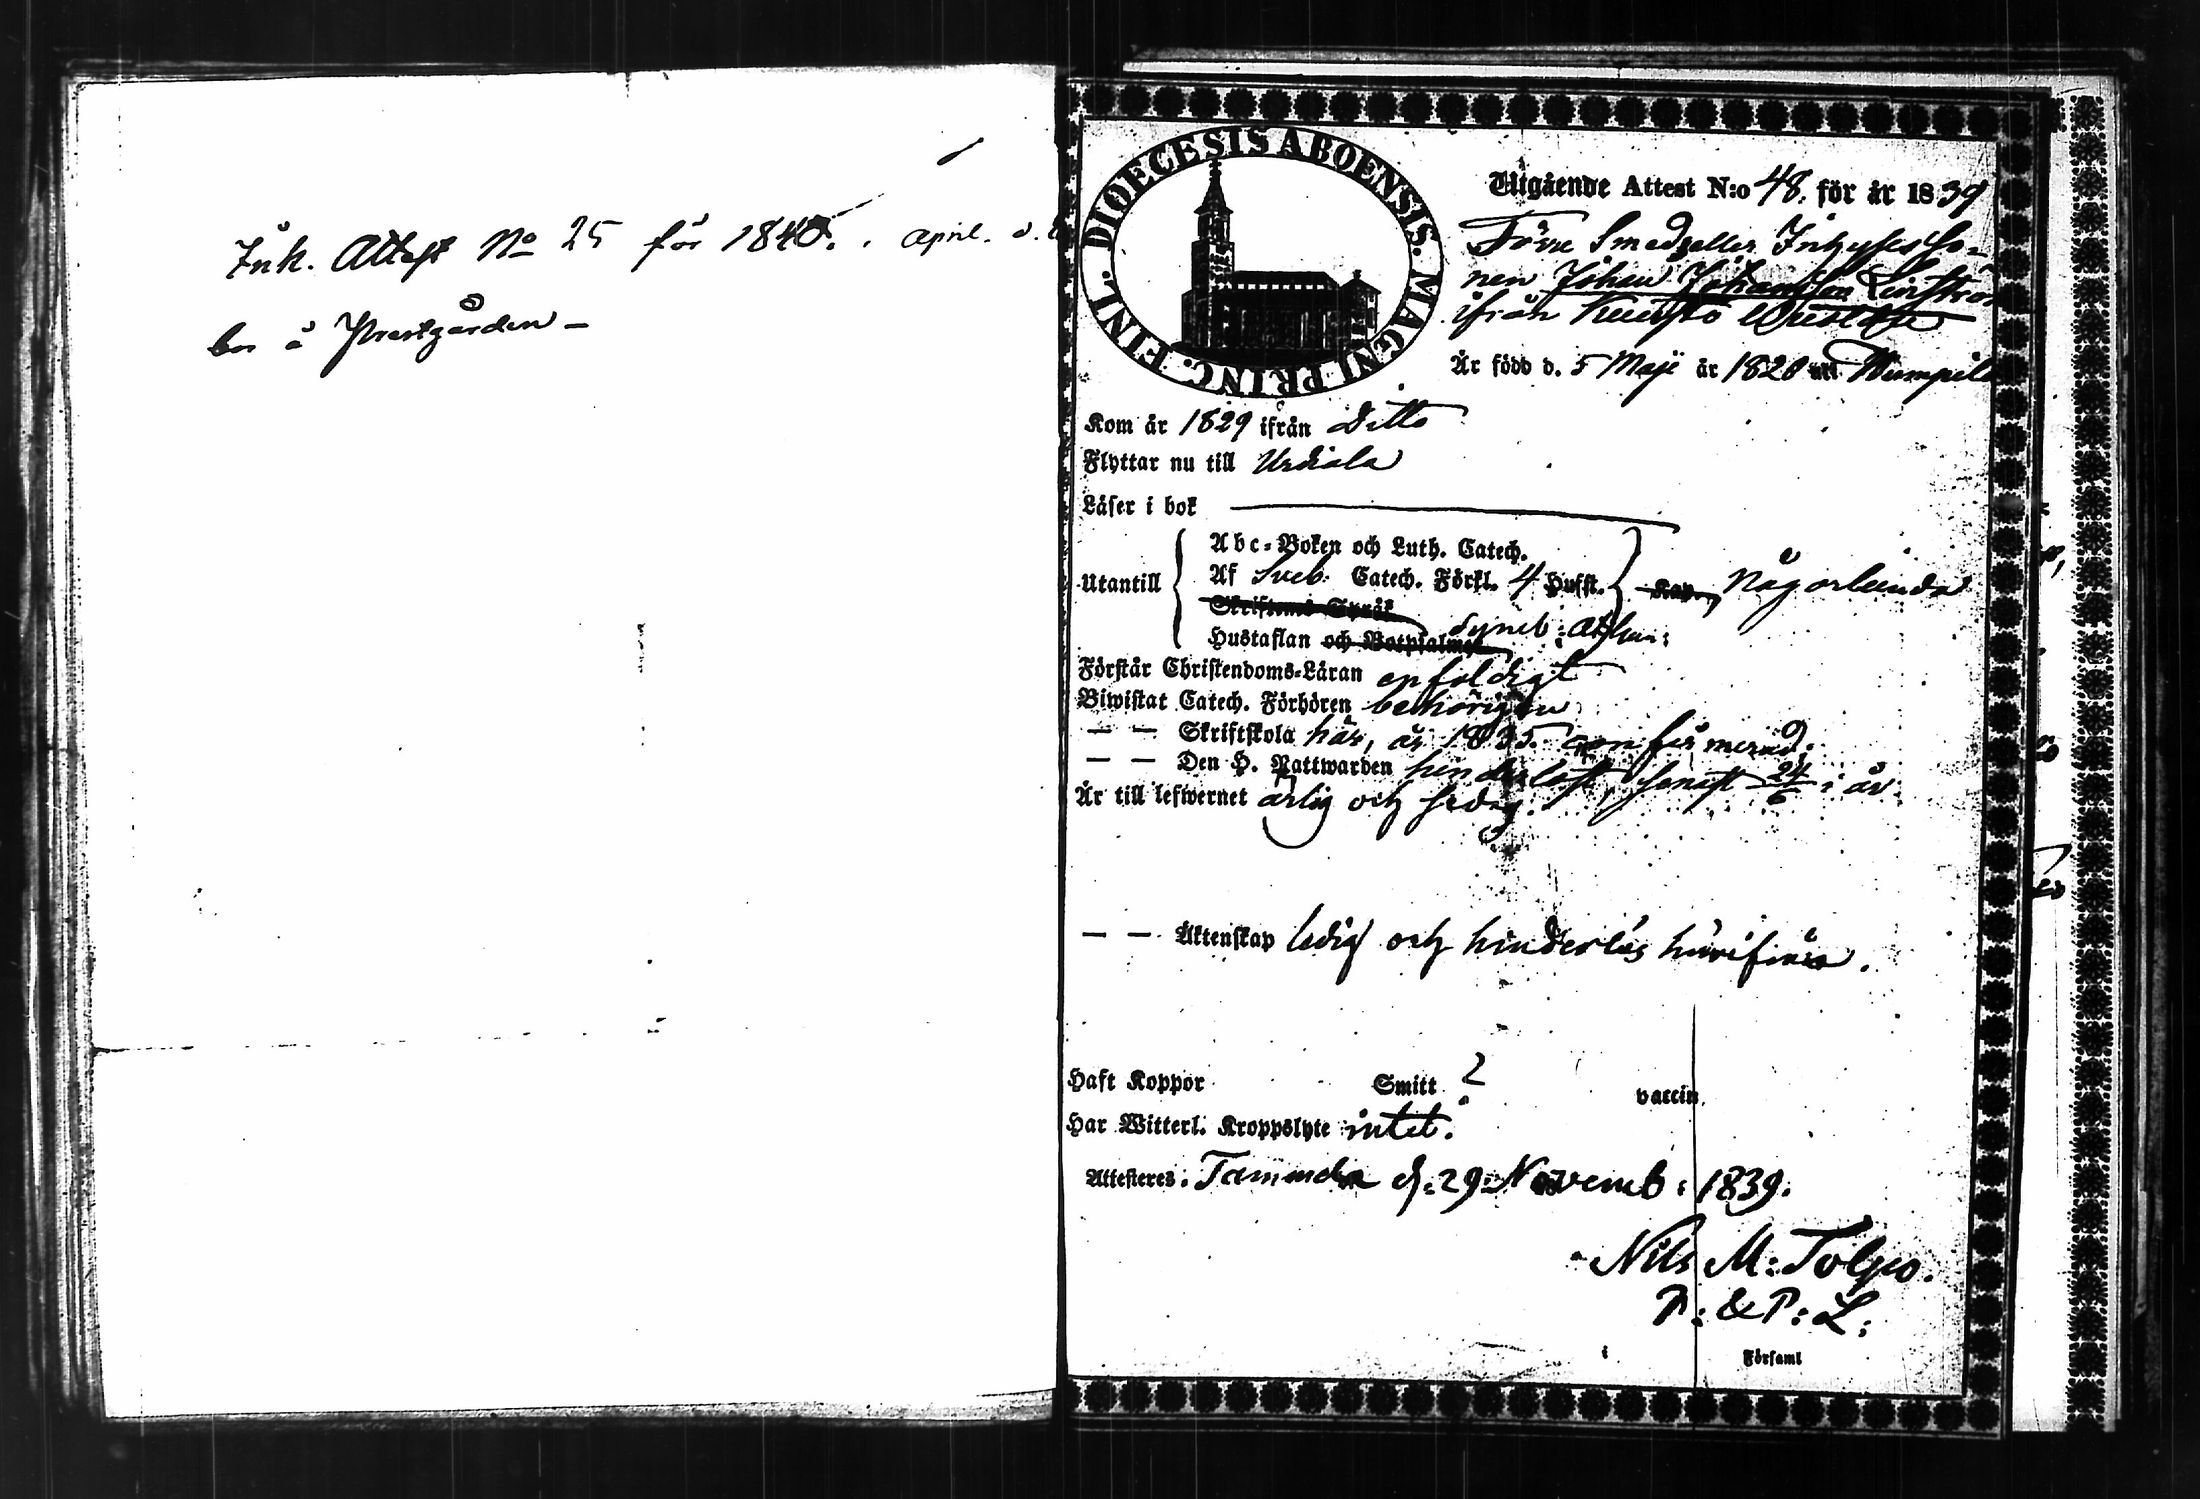 Ink. Attest No 25 för 1840. april. d.
bor å Prestgården –
DIOECESIS ABOENSIS. MAGNI PRINC. FINL.
Utgående Attest N:o 48. för år 1839
Förre Smedgesellen Inhyses So-
nen Johan Johansson Lenström
ifrån
Är född d. 5 Maji år 1820 uti Wampula
Kom år 1829 ifrån Ditto
Flyttar nu till Urdiala
Läser i bok
Utantill
Abc-Boken och Luth. Catech.
Af Sveb. Catech. Förkl. 4 Hufst. Kap. någorlunda
Skriftenes Språk
Hustaflan och Botpsalmer Symb: Athan:
Förstår Christendoms-Läran enfoldigt
Biwistat Catech. Förhören behörigen
— — Skriftskola här, år 1835 confirmerad.
— — Den H. Nattwarden hinderlöst, senast 24/6 i år
Är till lefwernet ärlig och sedig.
— — Äktenskap ledig och hinderlös härifrån.
Haft Koppor Smitt ? vaccin.
Har Witterl. Kroppslyte intet.
Attesteres. Tammela d. 29 Novemb: 1839.
Nils M: Tolpo.
P: & P: L:
i Församl